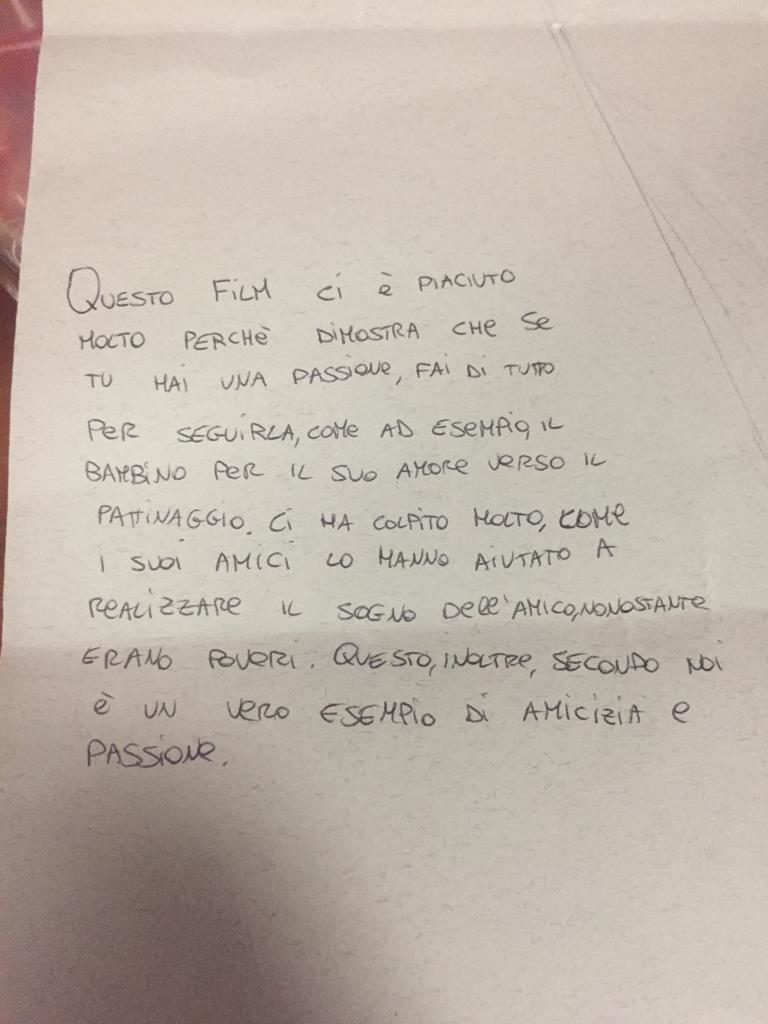 QUESTO FILM ci è PIACIUTO
MOLTO PERCHÈ DIMOSTRA CHE SE
TU HAI UNA PASSIONE, FAI DI TUTTO
PER SEGUIRLA, COME AD ESEMPIO, IL
BAMBINO PER IL SUO AMORE VERSO IL
PATTINAGGIO. CI HA COLPITO MOLTO, COME
I SUOI AMICI LO HANNO AIUTATO A
REALIZZARE IL SOGNO DELL'AMICO, NONOSTANTE
ERANO POVERI. QUESTO, INOLTRE, SECONDO NOI
È UN VERO ESEMPIO DI AMICIZIA E
PASSIONE.